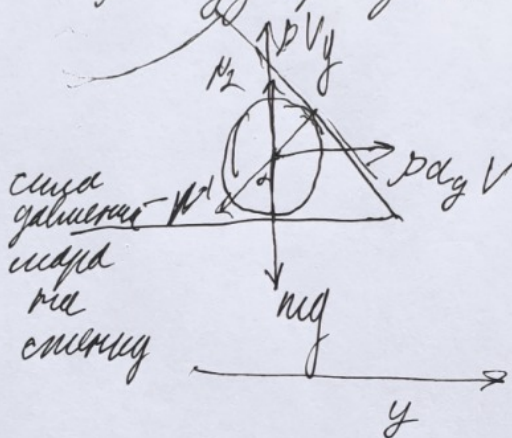 ρVg
N₂
ρ a_y V
сила
давлений N¹
шара
на
стенку
α
mg
y